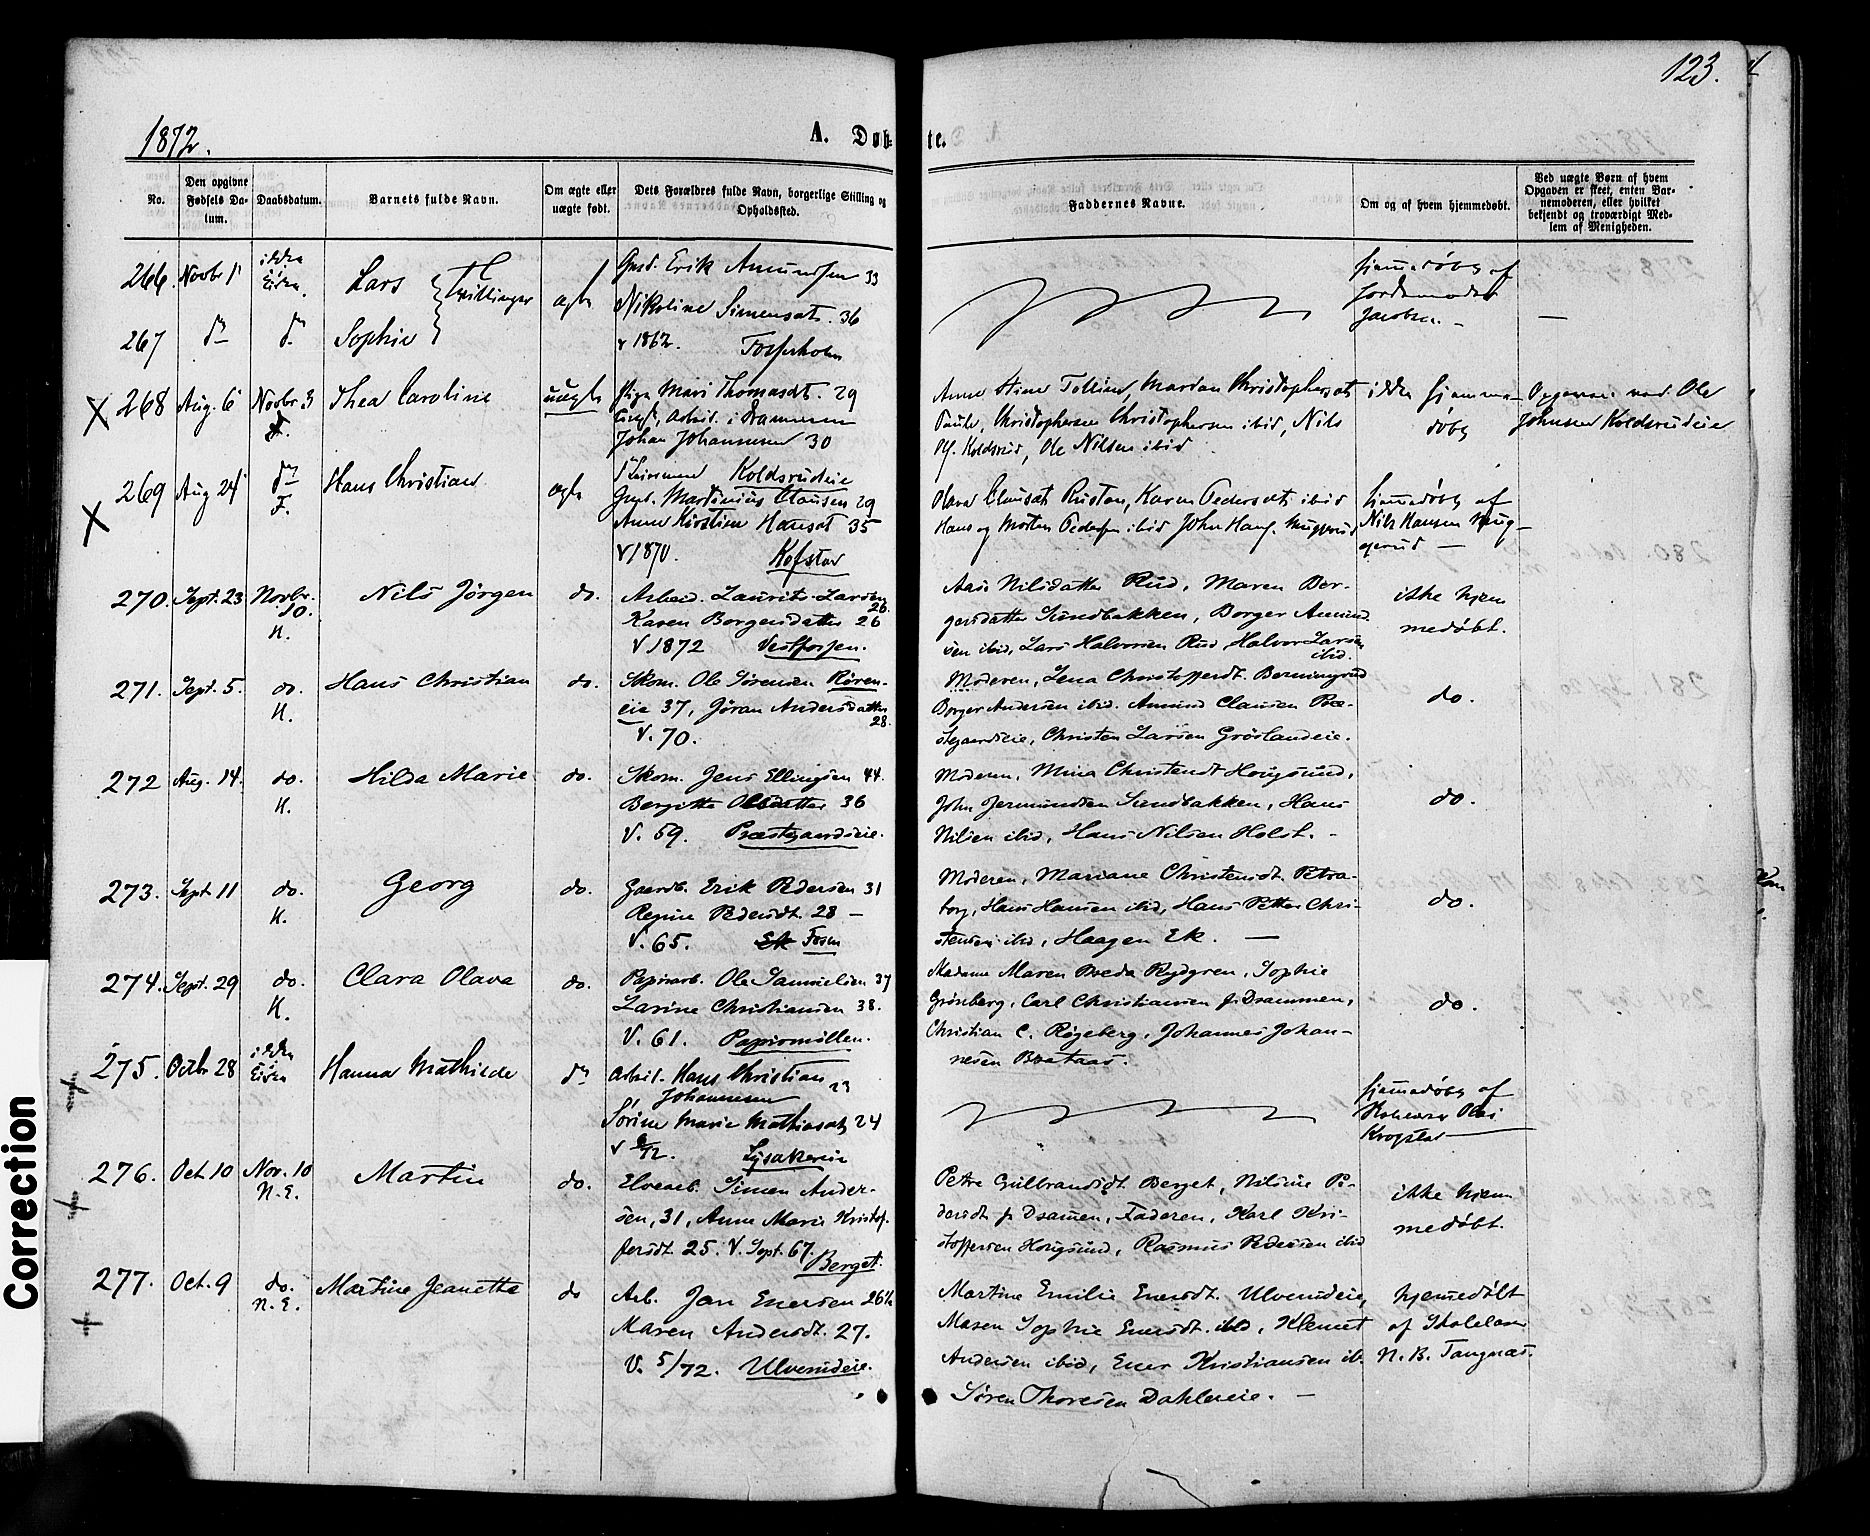 123.
1872.
A. Døb-
te.
No.
Den opgivne Fødsels Datum.
Daabsdatum.
Barnets fulde Navn.
Om ægte eller uægte født.
Dets Forældres fulde Navn, borgerlige Stilling og Opholdssted.
Faddernes Navne.
Om og af hvem hjemmedøbt.
Ved uægte Børn af hvem Opgaven er skeet, enten Barnemoderen, eller hvilket bekjendt og troværdigt Medlem af Menigheden.
266. Novbr 1 Lars Tvillinger ægte
Erik Amundsen 33
Nikoline Simensdt. 36
v 1862.
hjemmedøbt af
Jordemoder
Jacobsen. -
267 Sophie
268 Aug. 6 Novbr 3 F. Thea Caroline uægte
Pige Mari Thomasdt. 29
Arbeid. i Drammen
Johan Johannesen 30
Koldsrudeie
Christophersen Christophersen ibid, Nils
Koldsrud, Ole Nilsen ibid
ikke hjemme-
døbt
Ole
Johnsen Koldsrudeie
269 Aug 24 F. Hans Christian ægte
Martinius Clausen 29
Anne Kirstine Hansdt 35
v 1870. Kofstad
Olava Clausdt Rustan, Karen Pedersdt ibid
Hans og Morten Pedersen ibid John Hans. Muggerud
hjemmedøbt af
Nils Hansen Mug-
gerud -
270. Sept. 23 Novbr. 10. H. Nils Jørgen do.
Arbeid. Laurits Larsen 26
Karen Borgersdatter 26
V 1872 Vestfossen.
Nilsdatter Rud, Maren Bor-
gersdatter Sundbakken, Borger Amund
sen ibid, Lars Halvorsen Rud, Halvor Larsen
ibid.
ikke hjem
medøbt.
271. Sept. 5. do. H. Hans Christian do.
Skom. Ole Sørensen Røren-
eie 37, Jøran Andersdatter
28.
V. 70.
Moderen, Lena Christoffersdt. Berningrud
Borger Andersen ibid. Amund Clausen Præ-
stegaardseie, Christen Larsen Grøslandeie.
do.
272 Aug. 14. do. H. Hilda Marie do.
Skom. Jens Ellingsen 44.
Bergitte Olsdatter 36
V. 59. Præstegaardseie.
Moderen, Mina Christensdt Hougsund,
John Jermundsen Sundbakken, Hans
Nilsen ibid, Hans Nilsen Holst. -
do.
273. Sept 11 do. H. Georg do.
Gaardb. Erik Pedersen 31
Regine Pedersdt. 28 -
V. 65. Ek Fosen
Moderen, Mariane Christensdt. Petra-
borg, Hans Hansen ibid, Hans Petter Chri-
stensen ibid, Haagen Ek. -
do.
274. Sept. 29 do. H. Clara Olava do.
Papirarb. Ole Samuelsen 37
Larine Christiansen 38.
V. 61. Papirmøllen.
Madame Maren Breda Rydgren, Sophie
Grønberg, Carl Christiansen fr Drammen,
Christian C. Røgeberg, Johannes Johan-
nesen Braataas.
do.
275. Octbr 28 Hanna Mathilde
Arbeid. Hans Christian
Johannesen
Sørine Marie Mathiasdt 24
Lysakereie
hjemmedøbt af
Krogstad
276. Oct. 10 Nov. 10 N. E. Martin do.
Elvearb. Simen Ander-
sen, 31, Anne Marie Kristof-
fersdt. 25. V. Sept. 67.
Berget.
Petre Gulbrandsdt. Berget, Nilsine Pe-
dersdt fr Drammen, Faderen, Karl Kri-
stoffersen Hougsund, Rasmus Pedersen ibid
ikke hjem
medøbt.
277. Oct. 9 do. N. E. Martine Jeanette do
Arb. Jan Enersen 26½
Maren Andersdt. 27.
V. 5/72. Ulverudeie.
Martine Emilie Enersdt. Ulverudeie,
Maren Sophie Enersdt. ibid, Klemet
Andersen ibid, Ener Kristiansen ib.
Søren Thoresen Dahlereie. -
hjemmedøbt
af Skolelærer
N. B. Tangnæs.
Correction